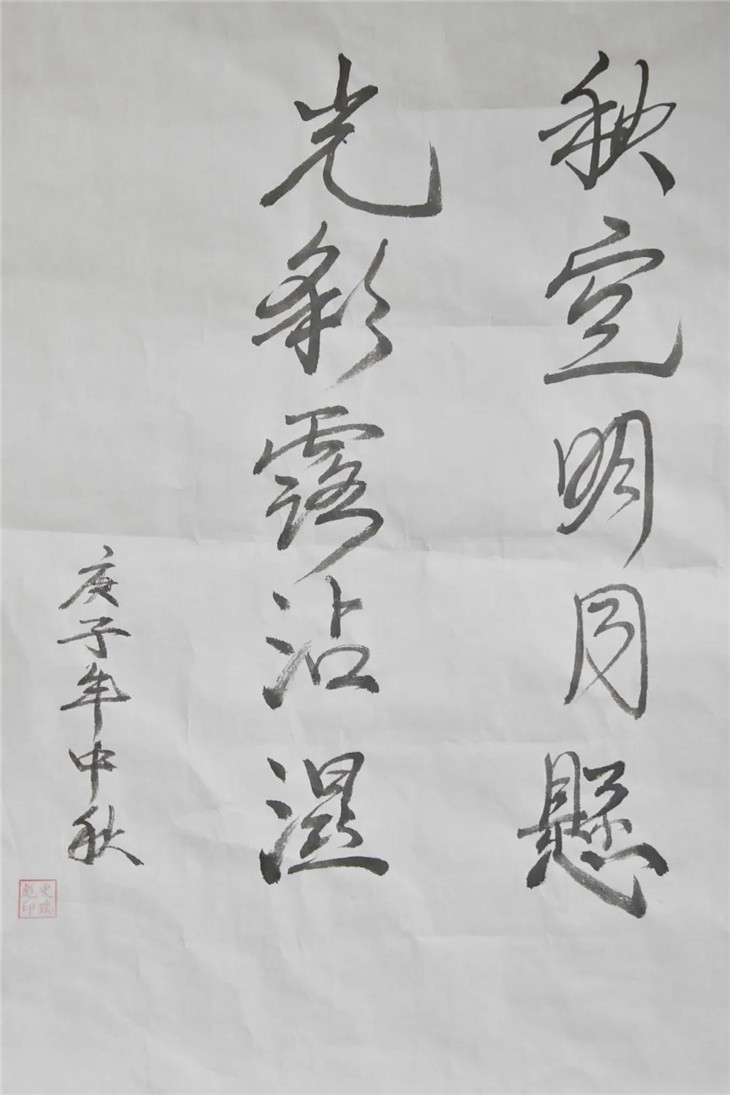 秋空明月懸
光彩露沾濕
庚子年中秋